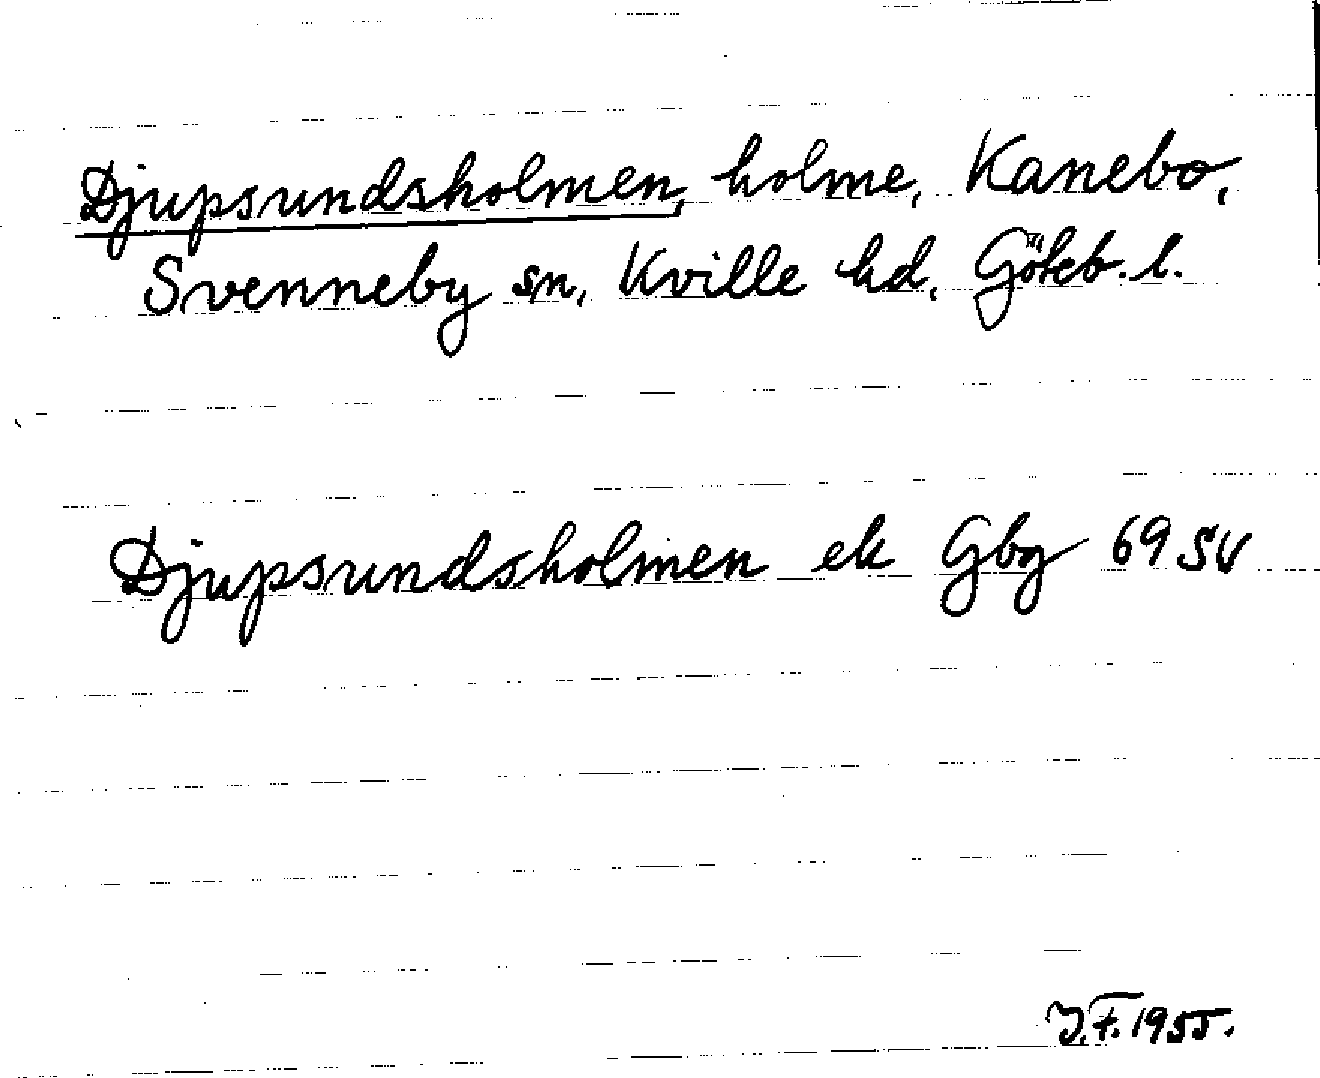 Djupsundsholmen, holme, Kanebo,
Svenneby sn, Kville hd, Göteb. l.
Djupsundsholmen ek Gbg 69 SV
J.F. 1955.